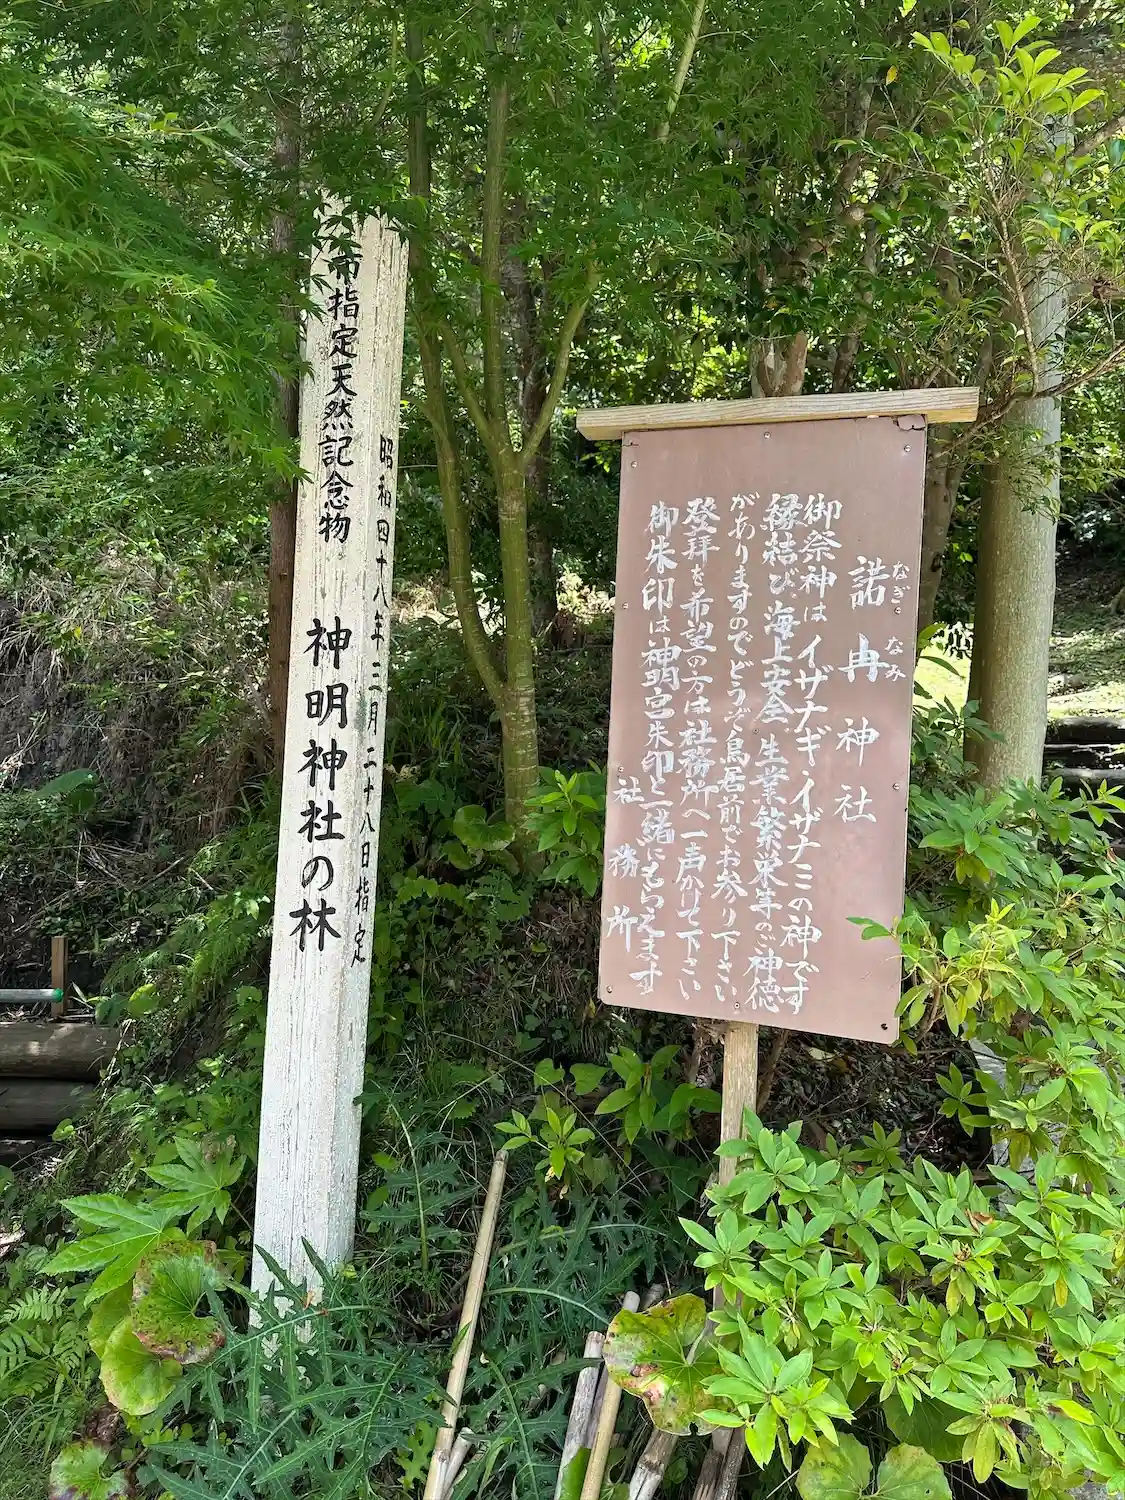 市指定天然記念物
神明神社の林
昭和四十八年三月二十八日指定
諾冉神社
なぎ なみ
御祭神はイザナギ・イザナミの神です
縁結び、海上安全 生業繁栄等のご神徳
がありますのでどうぞ鳥居前でお参り下さい
登拝を希望の方は社務所へ一声かけて下さい
御朱印は神明宮朱印と一緒にもらえます
社務所